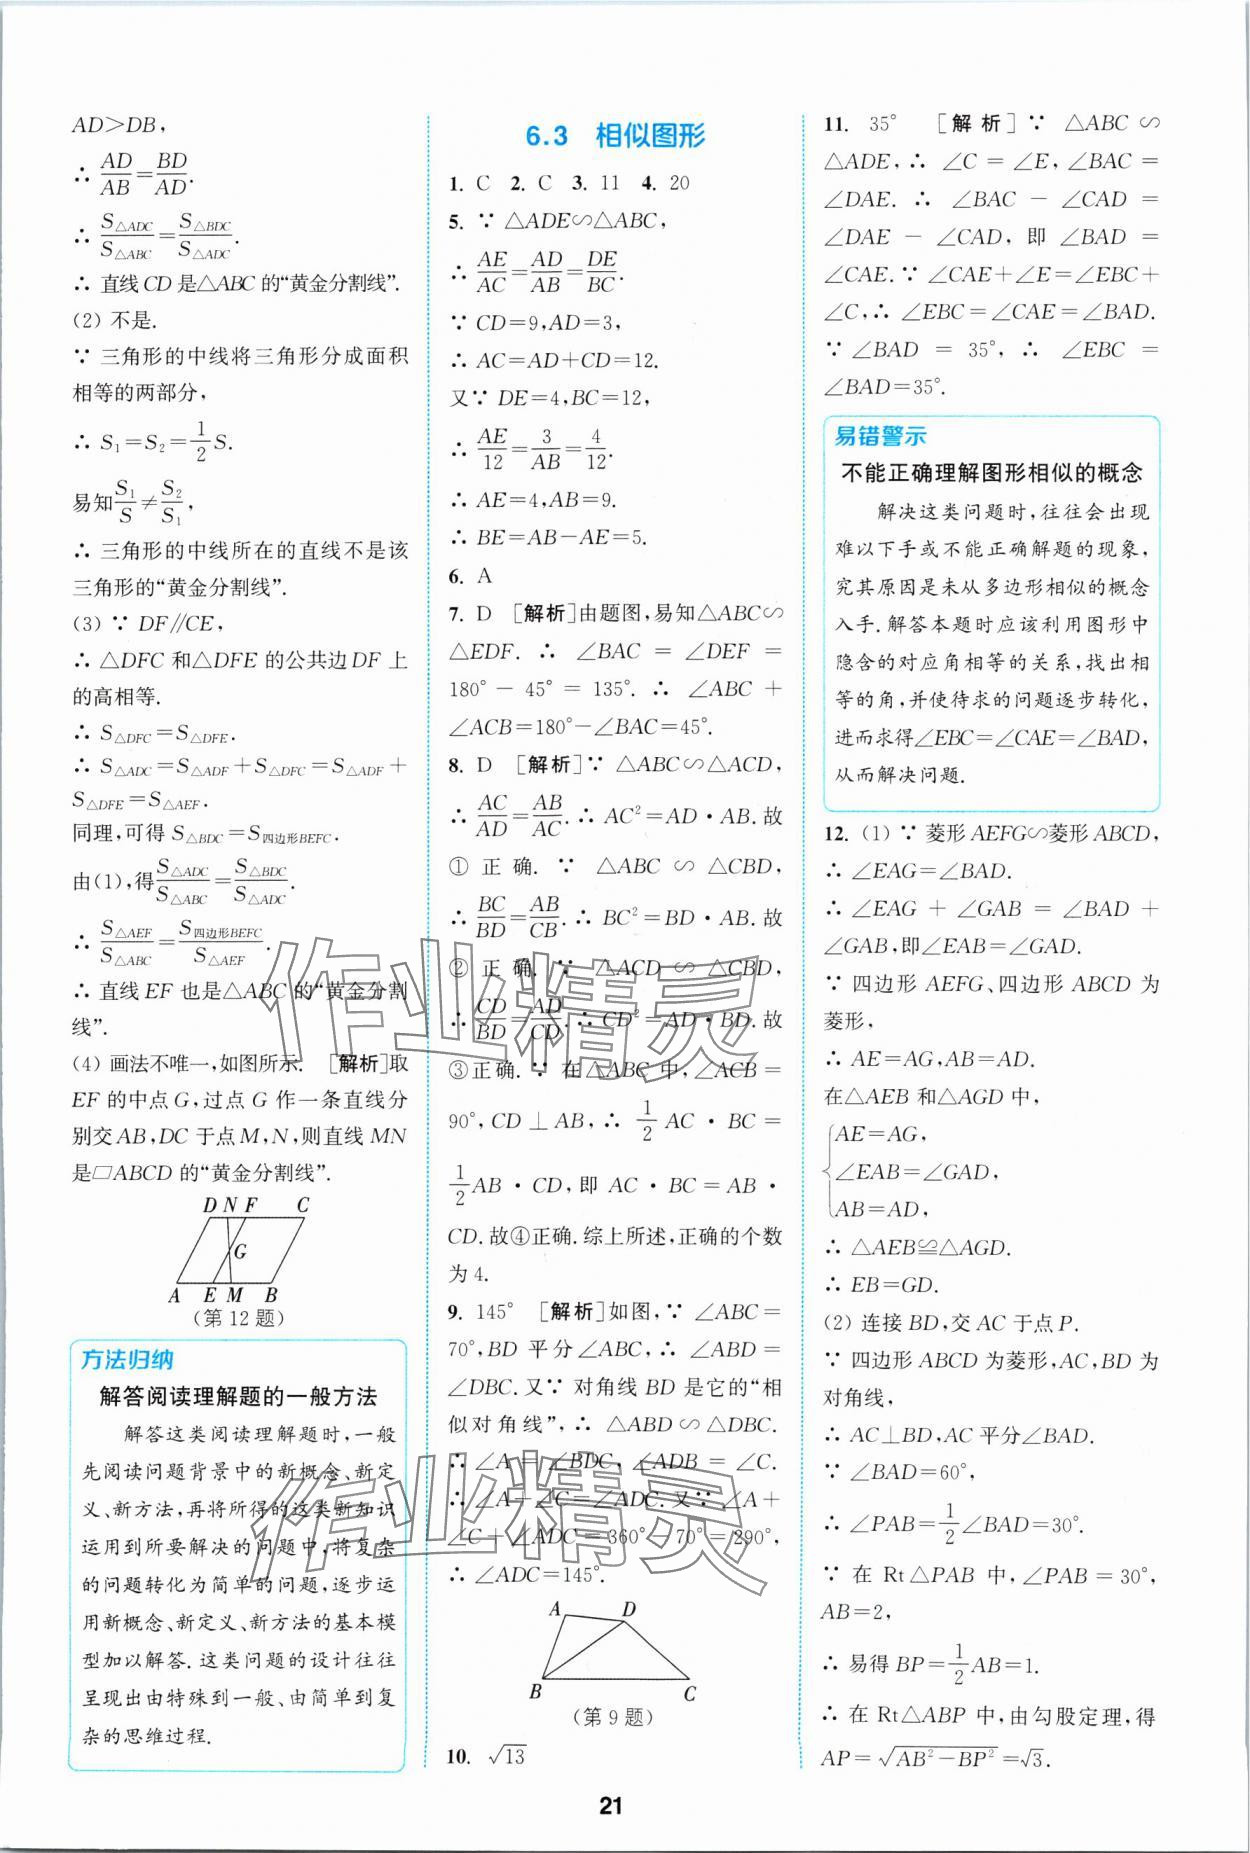 AD>DB,
∴ AD/AB=BD/AD.
∴ S△ADC/S△ABC=S△BDC/S△ADC.
∴ 直线CD是△ABC的“黄金分割线”.
(2) 不是.
∵ 三角形的中线将三角形分成面积
相等的两部分,
∴ S₁=S₂=1/2S.
易知S₁/S≠S₂/S₁,
∴ 三角形的中线所在的直线不是该
三角形的“黄金分割线”.
(3) ∵ DF∥CE,
∴ △DFC和△DFE的公共边DF上
的高相等.
∴ S△DFC=S△DFE.
∴ S△ADC=S△ADF+S△DFC=S△ADF+
S△DFE=S△AEF.
同理,可得S△BDC=S四边形BEFC.
由(1),得S△ADC/S△ABC=S△BDC/S△ADC.
∴ S△AEF/S△ABC=S四边形BEFC/S△AEF.
∴ 直线EF也是△ABC的“黄金分割
线”.
(4) 画法不唯一,如图所示. [解析]取
EF的中点G,过点G作一条直线分
别交AB,DC于点M,N,则直线MN
是▱ABCD的“黄金分割线”.
D N F C
G
A E M B
(第12题)
方法归纳
解答阅读理解题的一般方法
解答这类阅读理解题时,一般
先阅读问题背景中的新概念、新定
义、新方法,再将所得的这类新知识
运用到所要解决的问题中,将复杂
的问题转化为简单的问题,逐步运
用新概念、新定义、新方法的基本模
型加以解答.这类问题的设计往往
呈现出由特殊到一般、由简单到复
杂的思维过程.
6.3 相似图形
1. C 2. C 3. 11 4. 20
5. ∵ △ADE∽△ABC,
∴ AE/AC=AD/AB=DE/BC.
∵ CD=9,AD=3,
∴ AC=AD+CD=12.
又∵ DE=4,BC=12,
∴ AE/12=3/AB=4/12.
∴ AE=4,AB=9.
∴ BE=AB−AE=5.
6. A
7. D [解析]由题图,易知△ABC∽
△EDF. ∴ ∠BAC = ∠DEF =
180° − 45° = 135°. ∴ ∠ABC +
∠ACB=180°−∠BAC=45°.
8. D [解析]∵ △ABC∽△ACD,
∴ AC/AD=AB/AC.∴ AC²=AD·AB.故
① 正确. ∵ △ABC ∽ △CBD,
∴ BC/BD=AB/CB.∴ BC²=BD·AB.故
② 正确. ∵ △ACD ∽ △CBD,
∴ CD/BD=AD/CD.∴ CD²=AD·BD.故
③正确.∵ 在△ABC中,∠ACB=
90°,CD⊥AB,∴ 1/2AC·BC=
1/2AB·CD,即AC·BC=AB·
CD.故④正确.综上所述,正确的个数
为4.
9. 145° [解析]如图,∵ ∠ABC=
70°,BD平分∠ABC,∴ ∠ABD=
∠DBC.又∵ 对角线BD是它的“相
似对角线”,∴ △ABD∽△DBC.
∴ ∠A=∠BDC,∠ADB=∠C.
∴ ∠A+∠C=∠ADC.又∵ ∠A+
∠C+∠ADC=360°−70°=290°,
∴ ∠ADC=145°.
A D
B C
(第9题)
10. √13
11. 35° [解析]∵ △ABC∽
△ADE,∴ ∠C=∠E,∠BAC=
∠DAE. ∴ ∠BAC − ∠CAD =
∠DAE − ∠CAD, 即 ∠BAD =
∠CAE.∵ ∠CAE+∠E=∠EBC+
∠C,∴ ∠EBC=∠CAE=∠BAD.
∵ ∠BAD = 35°, ∴ ∠EBC =
∠BAD=35°.
易错警示
不能正确理解图形相似的概念
解决这类问题时,往往会出现
难以下手或不能正确解题的现象,
究其原因是未从多边形相似的概念
入手.解答本题时应该利用图形中
隐含的对应角相等的关系,找出相
等的角,并使待求的问题逐步转化,
进而求得∠EBC=∠CAE=∠BAD,
从而解决问题.
12. (1) ∵ 菱形AEFG∽菱形ABCD,
∴ ∠EAG=∠BAD.
∴ ∠EAG + ∠GAB = ∠BAD +
∠GAB,即∠EAB=∠GAD.
∵ 四边形AEFG、四边形ABCD为
菱形,
∴ AE=AG,AB=AD.
在△AEB和△AGD中,
AE=AG,
∠EAB=∠GAD,
AB=AD,
∴ △AEB≌△AGD.
∴ EB=GD.
(2) 连接BD,交AC于点P.
∵ 四边形ABCD为菱形,AC,BD为
对角线,
∴ AC⊥BD,AC平分∠BAD.
∵ ∠BAD=60°,
∴ ∠PAB=1/2∠BAD=30°.
∵ 在Rt△PAB中,∠PAB=30°,
AB=2,
∴ 易得BP=1/2AB=1.
∴ 在Rt△ABP中,由勾股定理,得
AP=√(AB²−BP²)=√3.
21
作业精灵
作业精灵